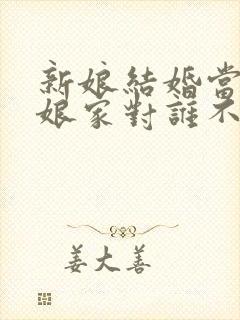 新娘結婚當
娘家對誰不
姜大善